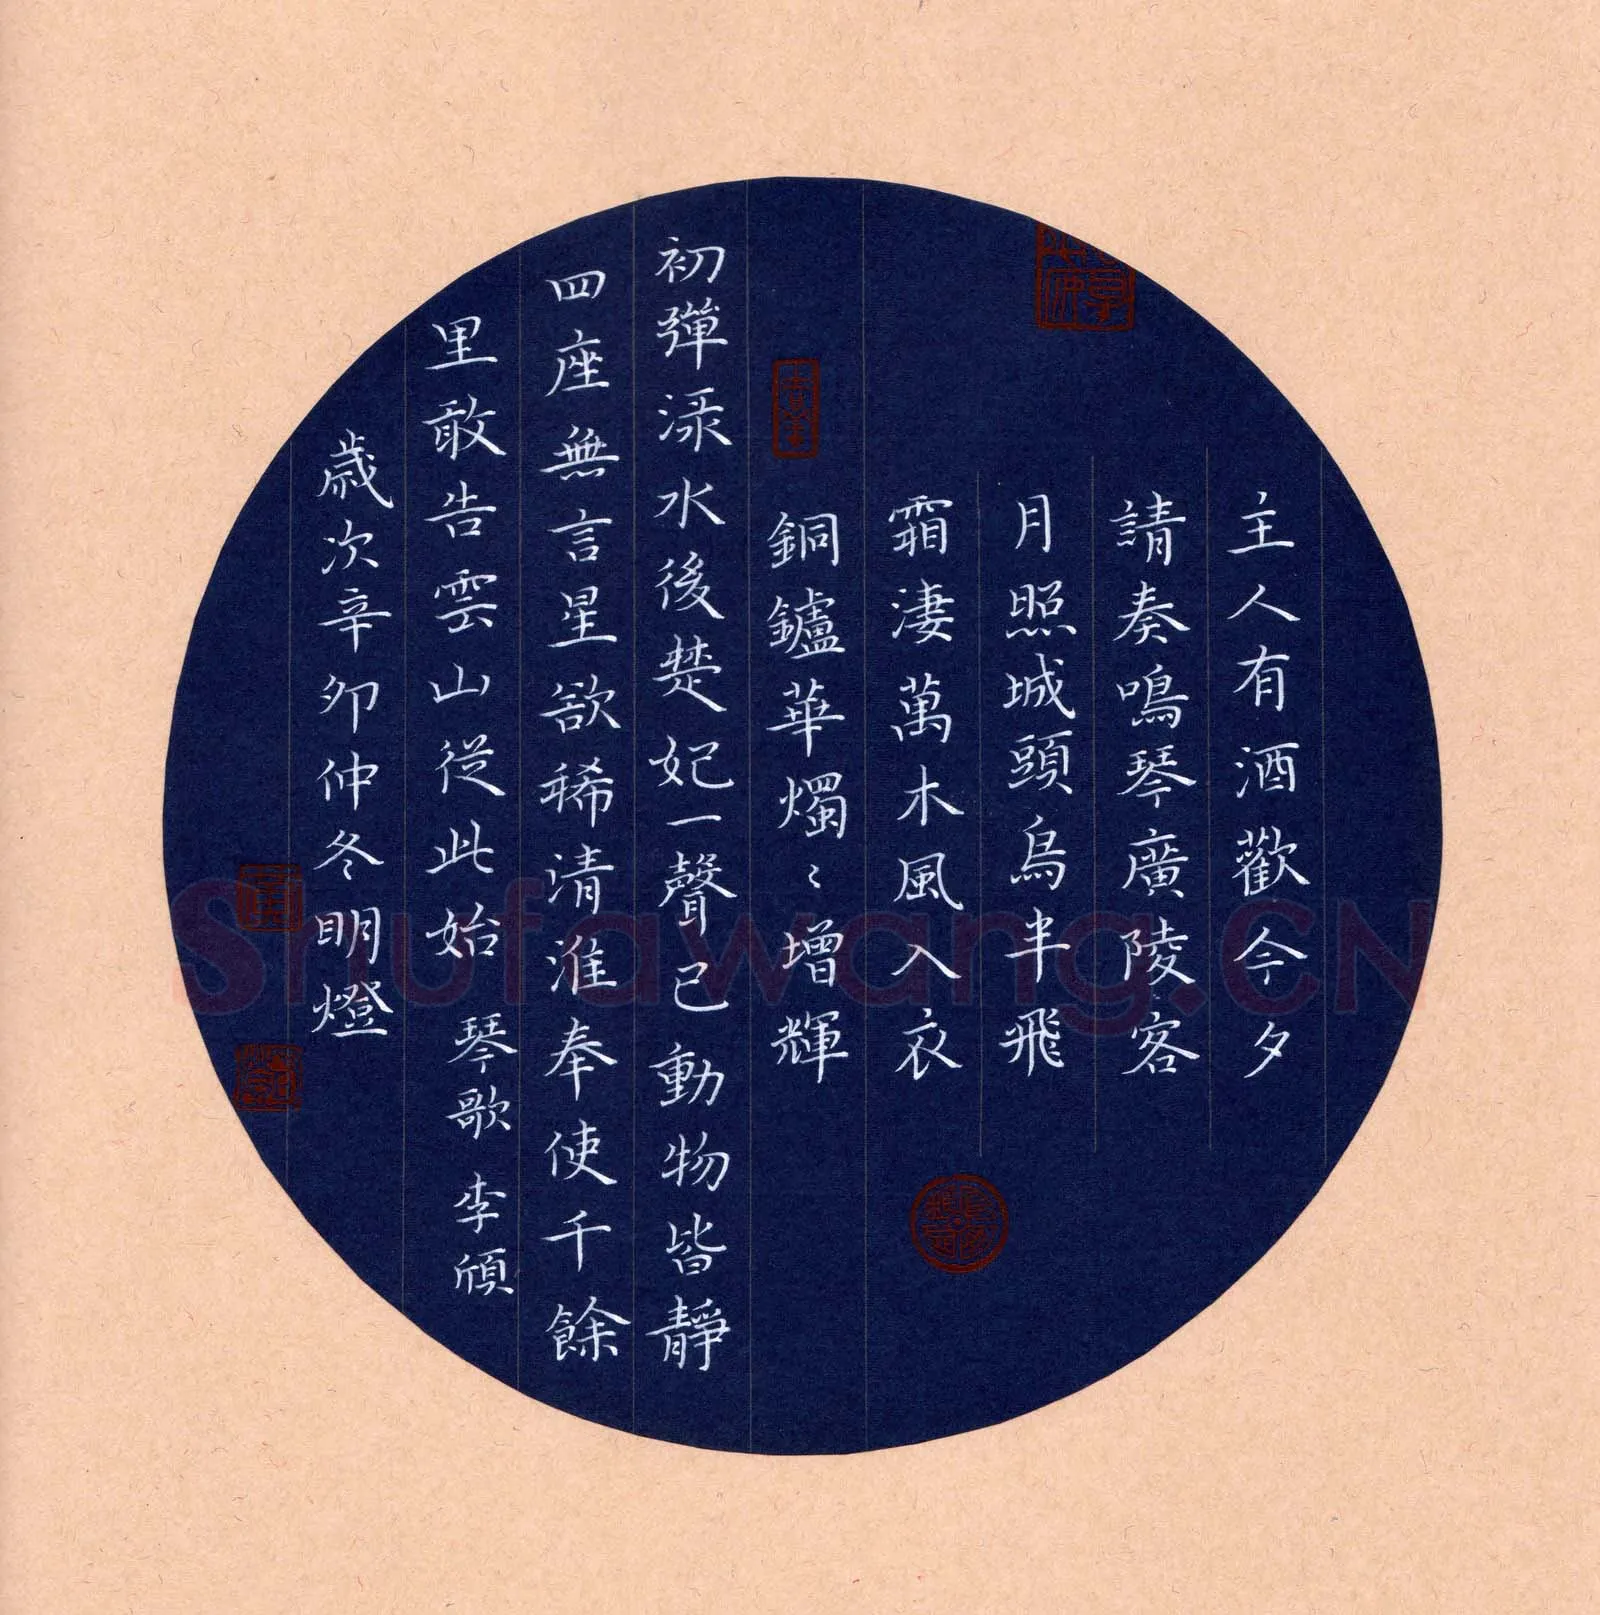 主人有酒歡今夕
請奏鳴琴廣陵客
月照城頭烏半飛
霜淒萬木風入衣
銅鑪華燭〻增輝
初彈淥水後楚妃一聲已動物皆靜
四座無言星欲稀清淮奉使千餘
里敢告雲山從此始 琴歌 李頎
歲次辛卯仲冬明燈
Shufawang.CN